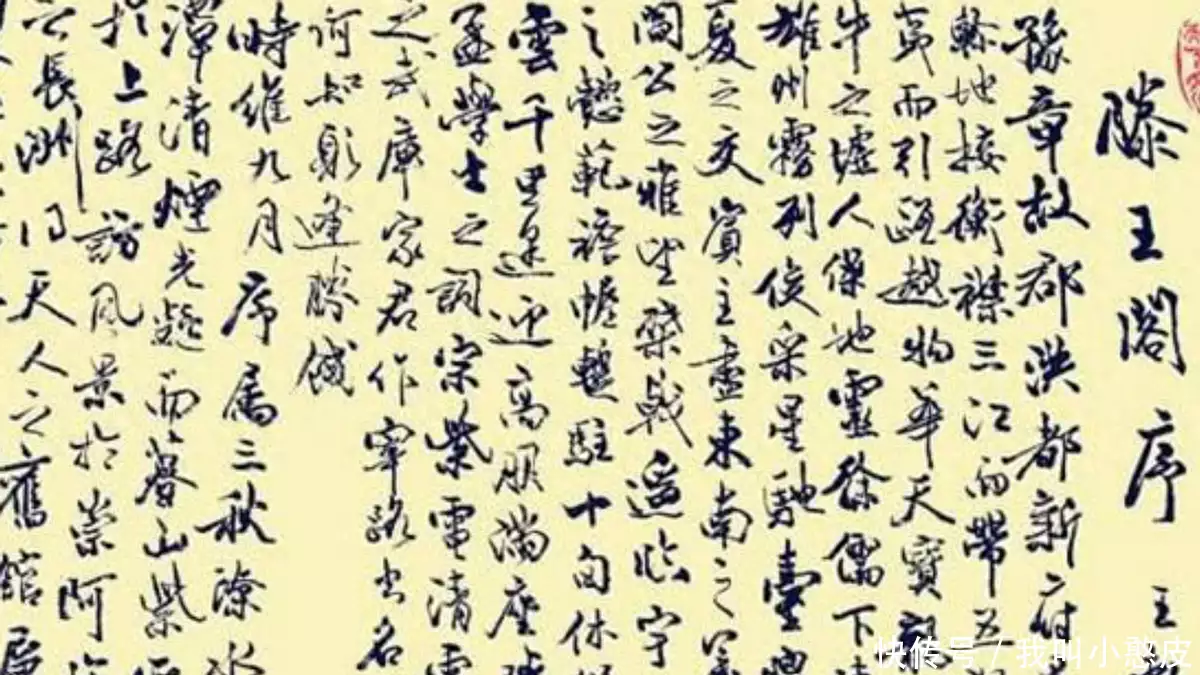 滕王阁序 王
豫章故郡洪都新府
軫地接衡襟三江而帶五
夷而引甌越物華天寶
牛之墟人傑地靈徐孺下
雄州霧列俊采星馳臺隍
夏之交賓主盡東南之
閻公之雅望棨戟遙臨宇
之懿範襜帷暫駐十旬休
雲千里逢迎高朋滿座
孟學士之詞宗紫電清霜
之武庫家君作宰路出名
何知躬逢勝餞
時維九月序屬三秋潦水
潭清煙光凝而暮山紫
於上路訪風景於崇阿
之長洲得天人之舊館層
快传号 / 我叫小憨皮